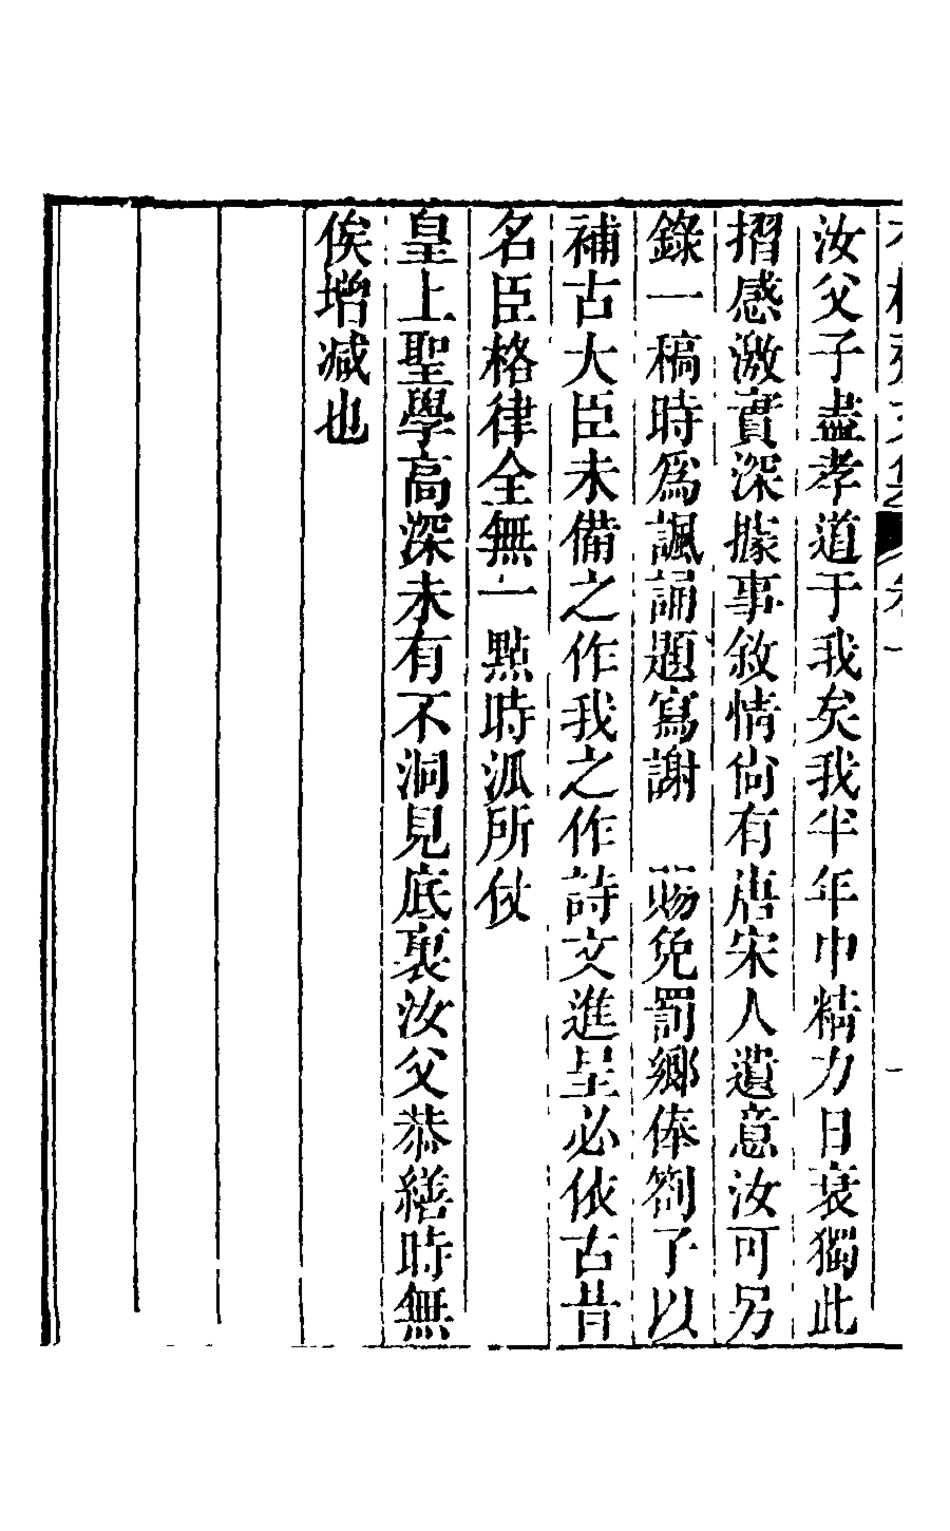 汝父子盡孝道于我矣我半年中精力日衰獨此
摺感激實深據事敘情尙有唐宋人遺意汝可另
錄一稿時爲諷誦題寫謝　賜免罰鄉俸劄子以
補古大臣未備之作我之作詩文進呈必依古昔
名臣格律全無一點時派所仗
皇上聖學高深未有不洞見底裏汝父恭繕時無
俟增減也